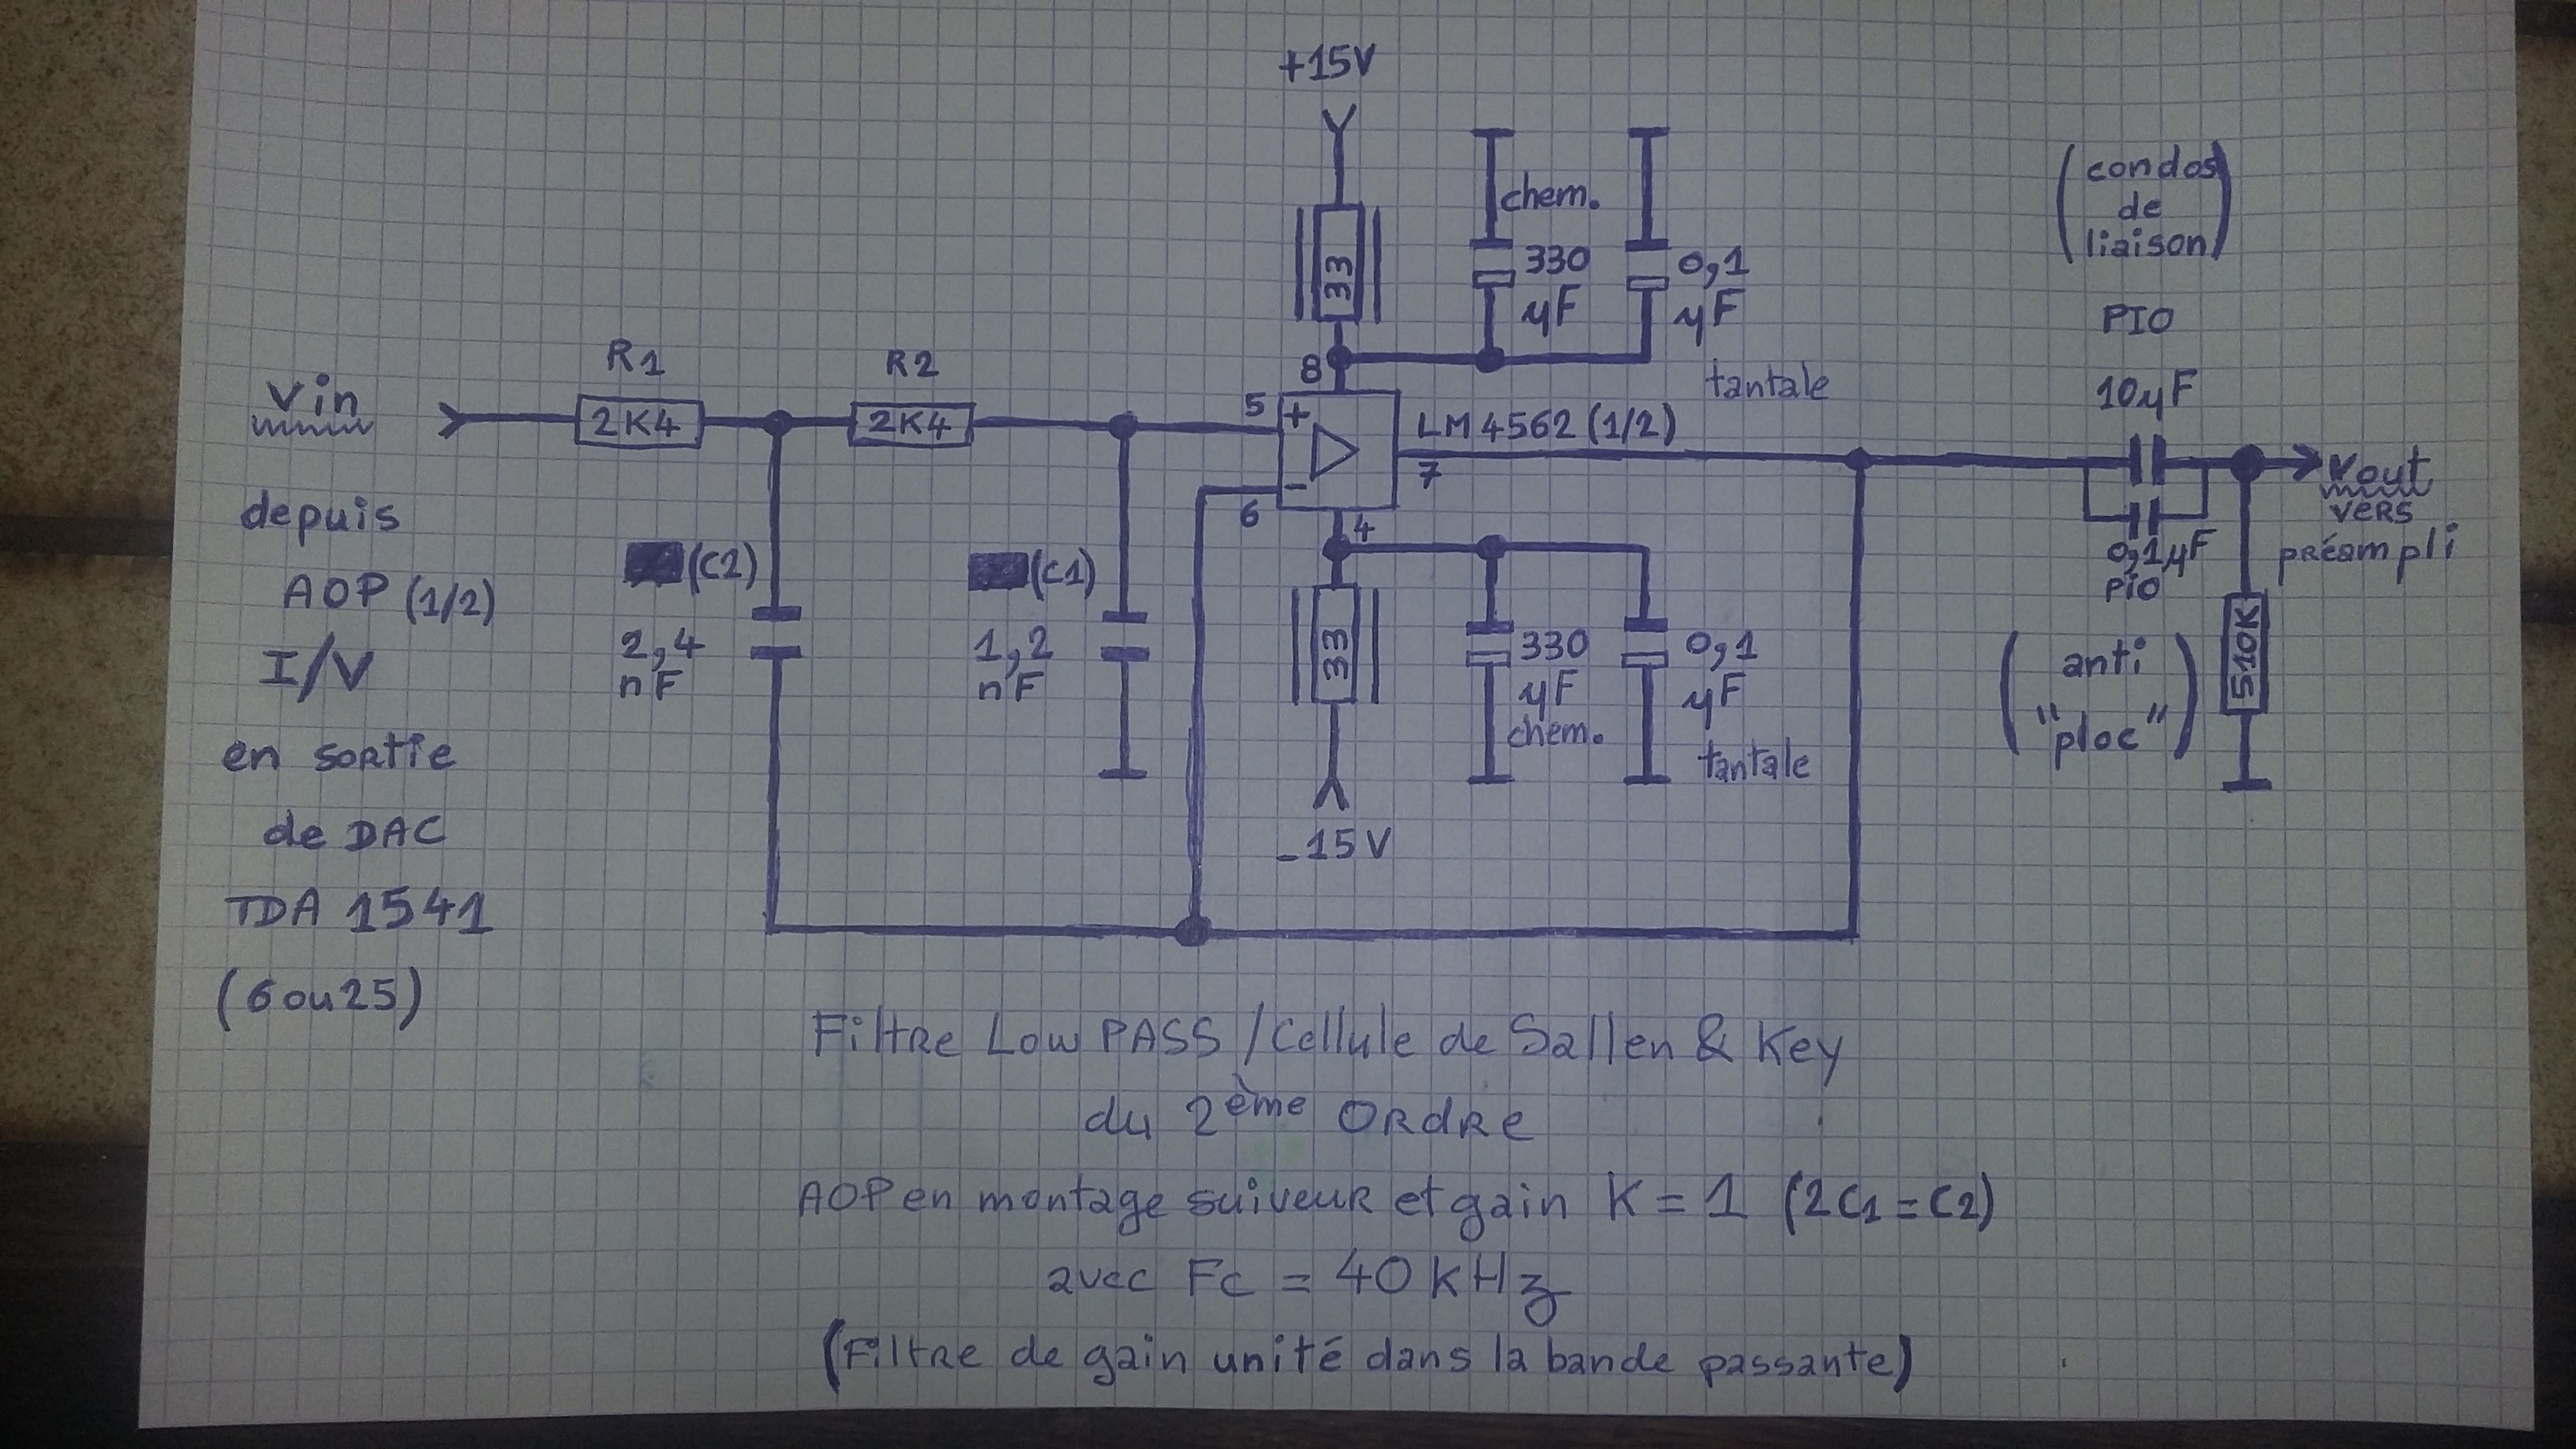 +15V
chem.
33
330
µF
0,1
µF
tantale
8
(condos
de
liaison)
PIO
10µF
R1
R2
Vin
2K4
2K4
5
+
-
6
LM4562 (1/2)
7
4
Vout
vers
préampli
0,1µF
PIO
510K
(anti
"ploc")
depuis
AOP (1/2)
I/V
en sortie
de DAC
TDA 1541
(6 ou 25)
(C2)
2,4
nF
(C1)
1,2
nF
33
330
µF
chem.
0,1
µF
tantale
-15V
Filtre Low PASS / Cellule de Sallen & Key
du 2ème Ordre
AOP en montage suiveur et gain K = 1 (2C1 = C2)
avec Fc = 40 KHz
(Filtre de gain unité dans la bande passante)